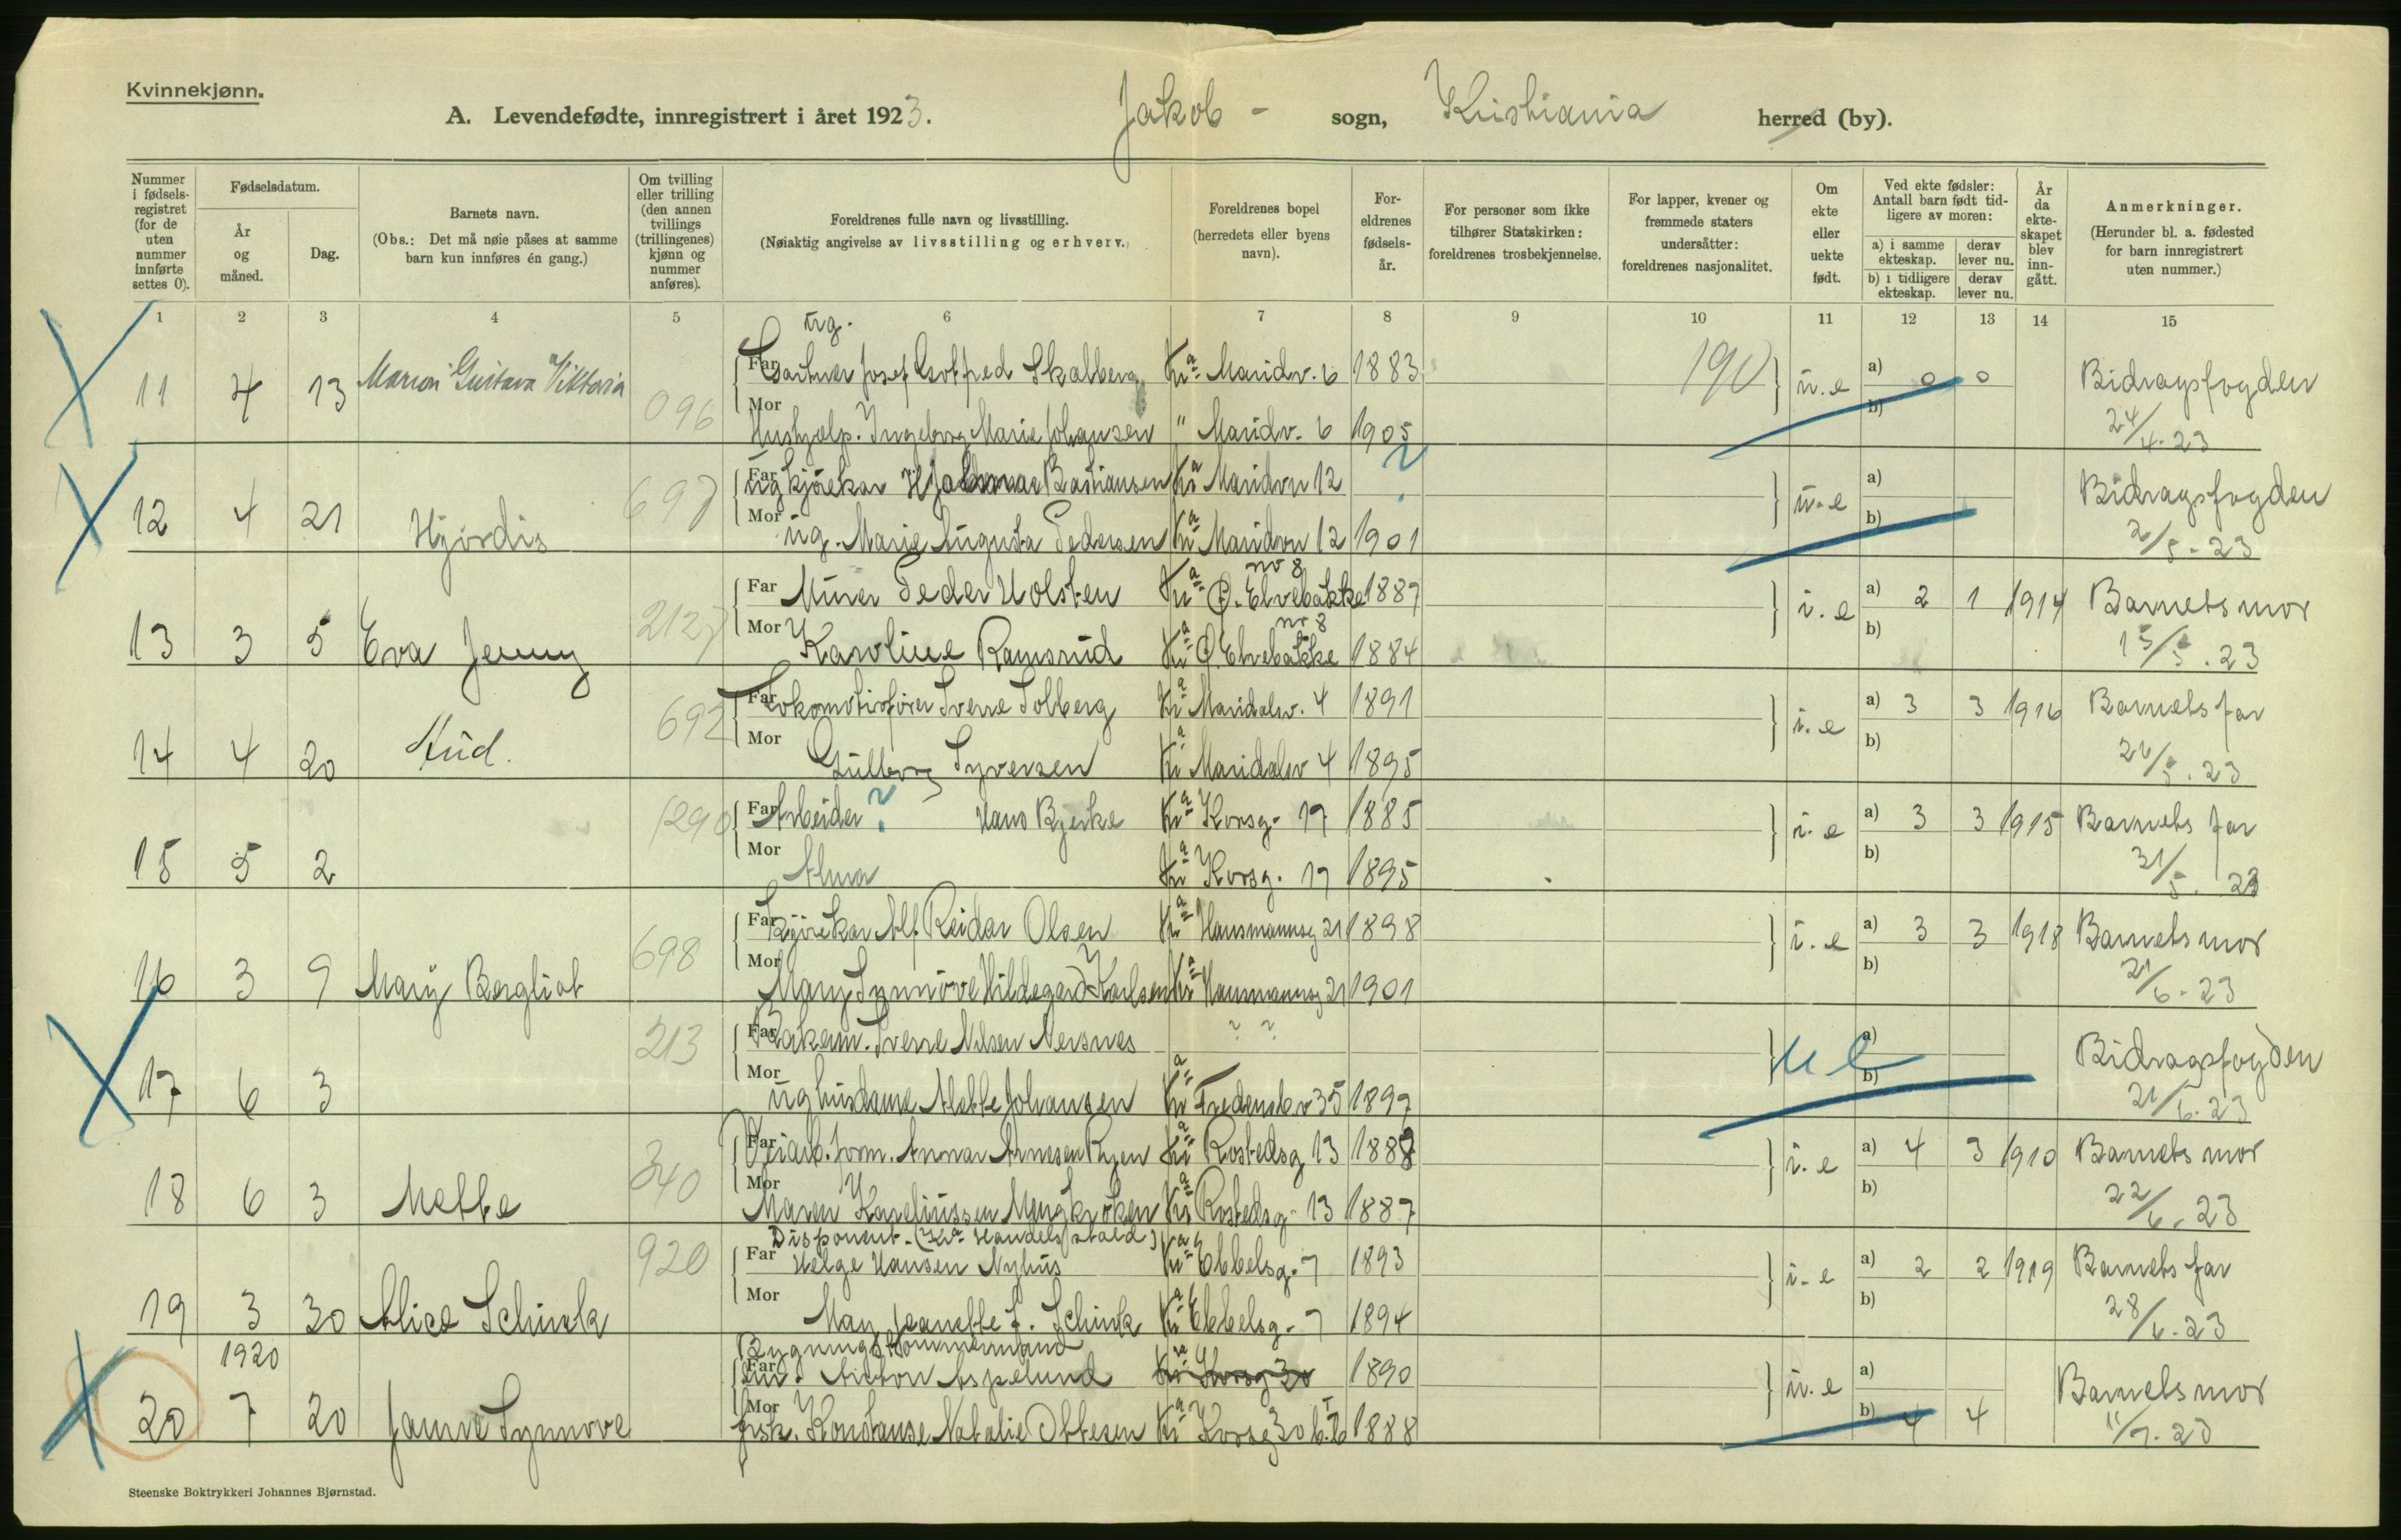 Kvinnekjønn.
A. Levendefødte, innregistrert i året 1923. Jakob - sogn, Kristiania herred (by).
Nummer i fødsels-registret (for de uten nummer innførte settes 0).
Fødselsdatum.
År og måned.
Dag.
Barnets navn.
(Obs.: Det må nøie påses at samme barn kun innføres én gang.)
Om tvilling eller trilling (den annen tvillings (trillingenes) kjønn og nummer anføres).
Foreldrenes fulle navn og livsstilling.
(Nøiaktig angivelse av livsstilling og erhverv.)
Foreldrenes bopel (herredets eller byens navn).
For-eldrenes fødsels-år.
For personer som ikke tilhører Statskirken: foreldrenes trosbekjennelse.
For lapper, kvener og fremmede staters undersåtter: foreldrenes nasjonalitet.
Om ekte eller uekte født.
Ved ekte fødsler: Antall barn født tid-ligere av moren:
a) i samme ekteskap.
derav lever nu.
b) i tidligere ekteskap.
derav lever nu.
År da ekte-skapet blev inn-gått.
Anmerkninger.
(Herunder bl. a. fødested for barn innregistrert uten nummer.)
1 2 3 4 5 6 7 8 9 10 11 12 13 14 15
ug.
Far Gartner Josef Gotfred Skalberg Kra Maridv. 6 1883 190
11 4 13 Marion Gustava Viktoria 096 u.e a) 0 0 b) Bidragsfogden
Mor Hushjelp. Ingeborg Marie Johansen " Maridv. 6 1905 24/4.23
Far ug kjørekar Hjalmar Bastiansen Kra Maridvn 12 ?
12 4 21 Hjørdis 697 u.e a) b) Bidragsfogden
Mor ug. Marie Augusta Pedersen Kra Maridvn 12 1901 2/5-23
Far Murer Peder Holsten Kra Ø. Elvebakke nr 8 1887
13 3 5 Eva Jenny 2127 i.e a) 2 1 1914 b) Barnets mor
Mor Karoline Ramsrud Kra Ø. Elvebakke nr 8 1884 15/5.23
Far Lokomotivfører Sverre Solberg Kra Maridalsv. 4 1891
14 4 20 Aud. 692 i.e a) 3 3 1916 b) Barnets far
Mor Gullborg Syversen Kra Maridalsv 4 1895 26/5.23
Far Arbeider ? Hans Bjerke Kra Korsg. 17 1885
15 5 2 1290 i.e a) 3 3 1915 b) Barnets far
Mor Alma Kra Korsg. 17 1895 31/5. 23
Far Kjørekar Alf Reidar Olsen Kra Hausmannsg 21 1898
16 3 9 Mary Bergliot 698 i.e a) 3 3 1918 b) Barnets mor
Mor Mary Synnøve Hildegard Karlsen Kra Hausmannsg 21 1901 21/6.23
Far Sverre Nilsen Nersnes ? ?
17 6 3 213 u e a) b) Bidragsfogden
Mor ug husdame Alette Johansen Kra Fredensbv 35 1897 21/6.23
Far Arnesen Ryen Kra Rostedsg 13 1888
18 6 3 Mette 340 i.e a) 4 3 1910 b) Barnets mor
Mor Maren Kareliussen Kra Rostedsg. 13 1887 22/6.23
Disponent. (Kra Handelsstald)
Far Helge Hansen Nyhus Kra Ebbelsg. 7 1893
19 3 30 Alice Schinck 920 i.e a) 2 2 1919 b) Barnets far
Mor May Jeanette f. Schinck Kra Ebbelsg. 7 1894 28/6.23
Bygningstømmermand
Far Anton Aspelund Kra Korsg 30 1890
20 1920 7 20 Synnøve u.e a) b) 4 4 Barnets mor
Mor frsk. Konstanse Natalie Ottesen Kra Korsg 30 b. I 1888 11/7.23
Steenske Boktrykkeri Johannes Bjørnstad.